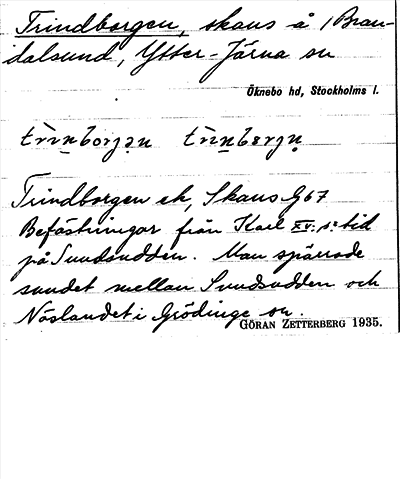 Trindborgen, skans å / Bran-
dalsund, Ytter-Järna sn
Öknebo hd, Stockholms l.
Trindborgen ek, Skans G67
Befästningar från Karl XV:s tid
på Sundsudden. Man spärrade
sundet mellan Sundsudden och
Näslandet i Grödinge sn.
GÖRAN ZETTERBERG 1935.